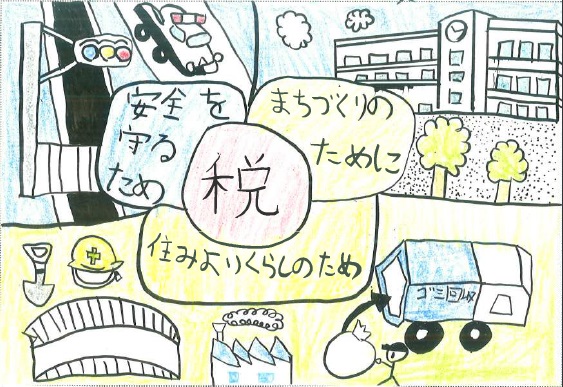 安全を
守る
ため
まちづくりの
ために
税
住みよいくらしのため
ゴミ回収